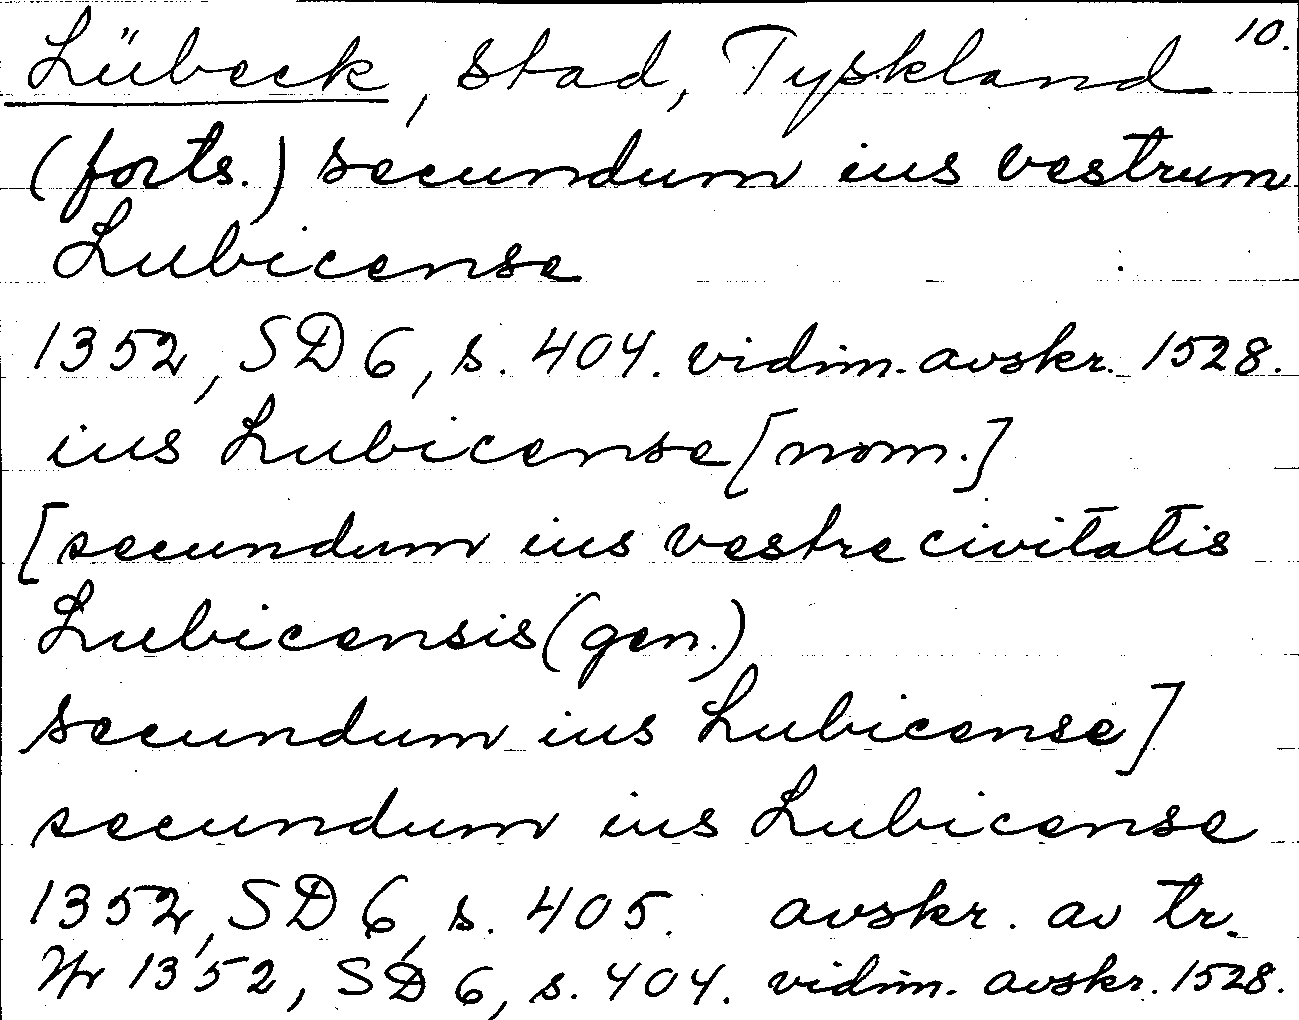 Lübeck, stad, Tyskland 10.
(forts.) secundum ius vestrum
Lubicense
1352, SD 6, s. 404. vidim. avskr. 1528.
ius Lubicense [nom.]
[secundum ius vestre civitatis
Lubicensis (gen.)
secundum ius Lubicense]
secundum ius Lubicense
1352, SD 6, s. 405. avskr. av tr.
1352, SD 6, s. 404. vidim. avskr. 1528.